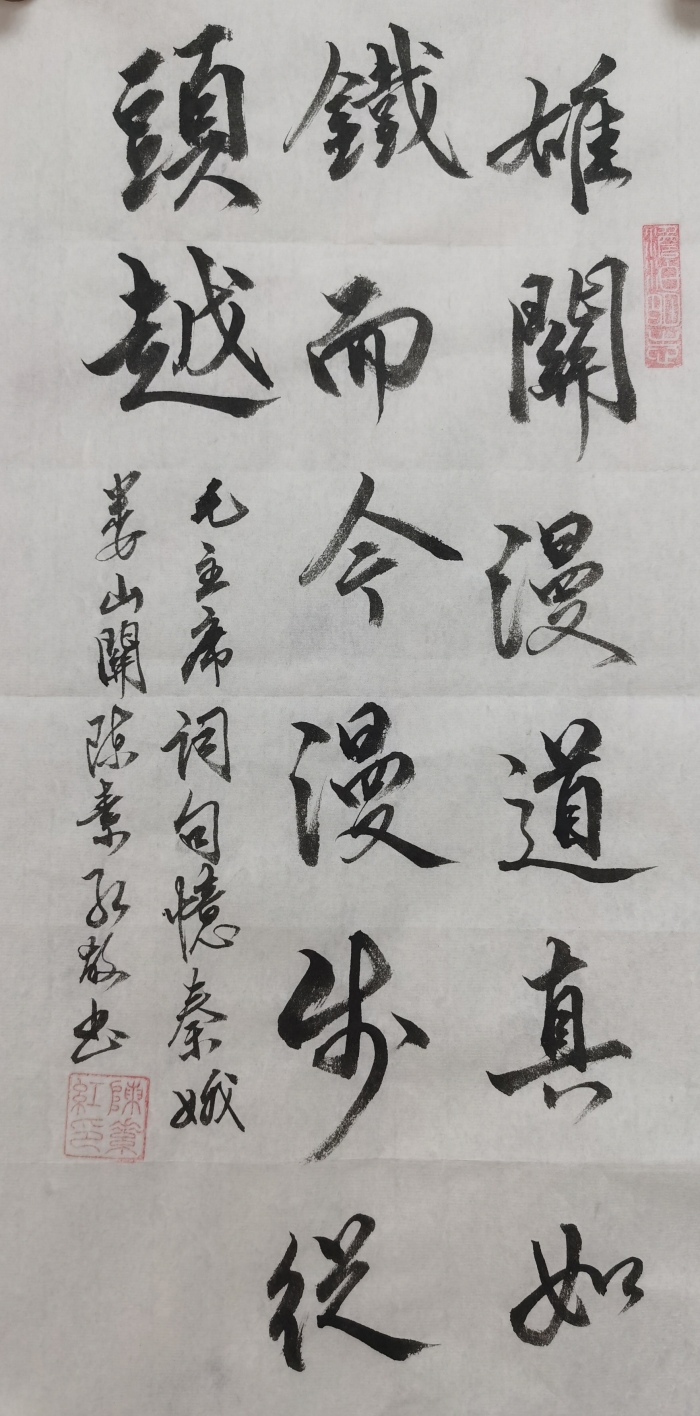 雄關漫道真如
鐵而今漫步從
頭越
毛主席詞句憶秦娥
婁山關陳素紅敬书
陳素紅印